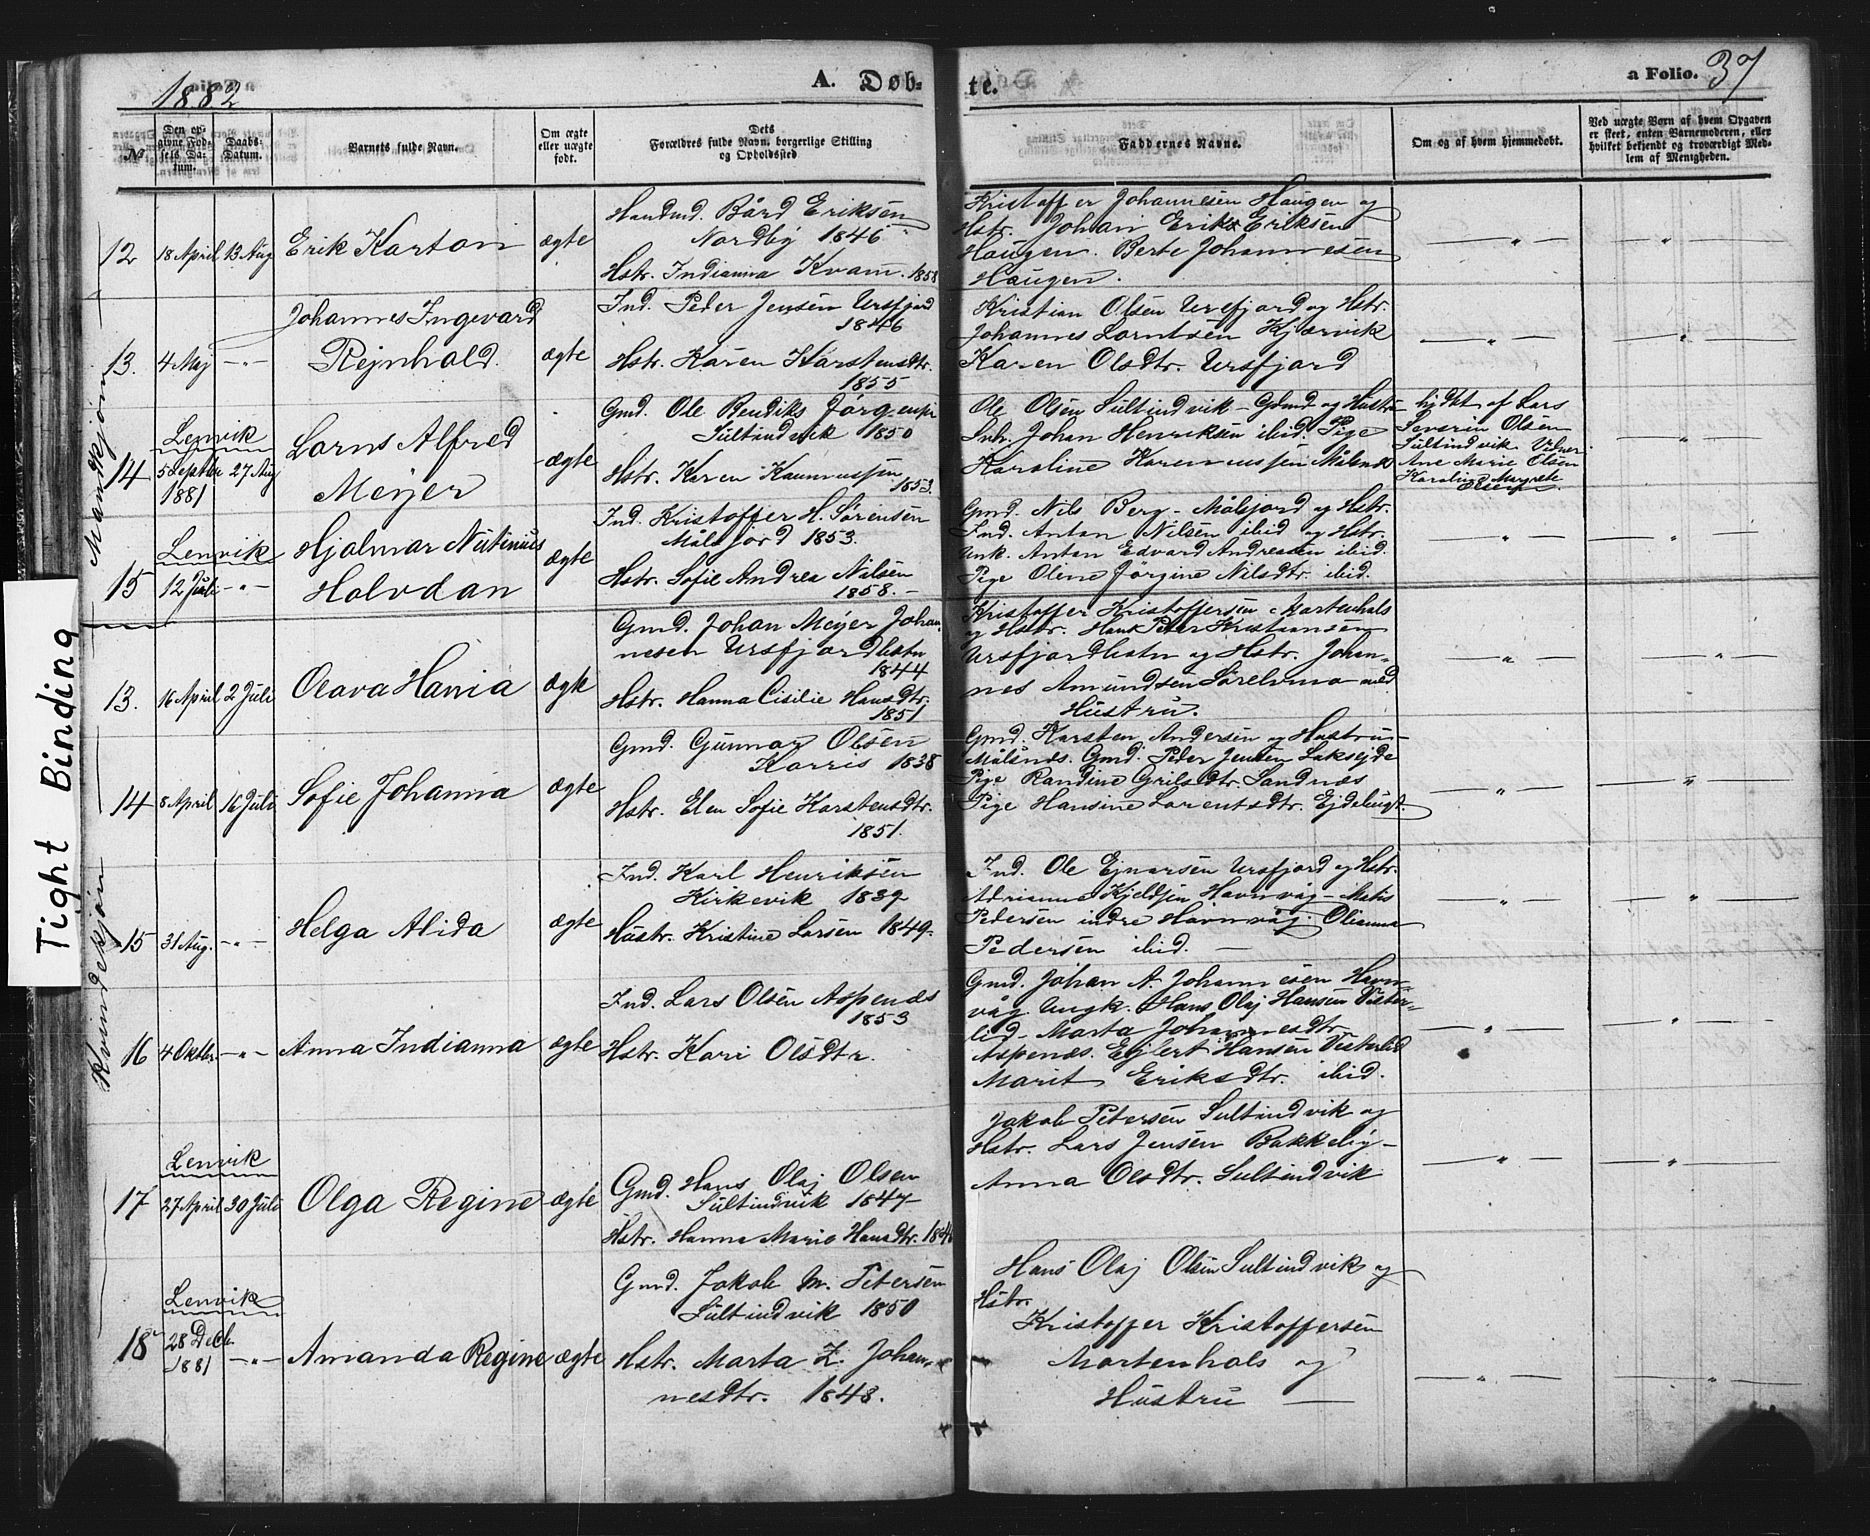 1882
A. Døb-
te.
a Folio. 37
No
Den op-
givne Fød-
sels Da-
tum.
Daabs-
Datum.
Barnets fulde Navn.
Om ægte
eller uægte
født.
Dets
Forældres fulde Navn, borgerlige Stilling
og Opholdssted
Faddernes Navne.
Om og af hvem hjemmedøbt.
Ved uægte Børn af hvem Opgaven
er skeet, enten Barnemoderen, eller
hvilket bekjendt og troværdigt Med-
lem af Menigheden.
Mandkjøn
12 18 April 13 Aug Erik Karton ægte
Handmd. Bård Eriksen
Nordby 1846
Hstr. Indianna Kvam. 1858
Kristoffer Johannesen Haugen og
Hstr. Johan Erik Eriksen
Haugen. Berte Johannesen
Haugen.
13. 4 Maj -"- Johannes Ingevard
Rejnhold. ægte
Ind. Peder Jensen Ursfjord
1846
Hstr. Karen Karstensdtr.
1855
Kristian Olsen Ursfjord og Hstr.
Johannes Lorntsen Kjærvik
Karen Olsdtr. Ursfjord
Lenvik
14 5 Septbr 27 Aug
1881
Lorns Alfred
Meyer
ægte
Gmd. Ole Bendiks Jörgensen
Sultindvik 1850
Hstr. Karen
1853.
Ole Olsen Sultindvik - Gdmd og Hustru
Inh. Johan Henriksen ibid. Pige
Karoline Målsnes
hjdbt af Lars
Severin Olsen
Sultindvik
Ane Marie Olsen
Karoline Margrete
Olsen.
Lenvik
15 12 Juli -"-
Hjalmar Nutinius
Holvdan
ægte
Ind. Kristoffer H. Sørensen
Målsfjord 1853.
Hstr. Sofie Andrea Nilsen
1858. -
Gmd. Nils Berg - Målsjord og Hstr.
Ind. Anton Nilsen ibid og Hstr.
Unk. Anton Edvard Andreasen ibid.
Pige Oline Jörgine Nilsdtr. ibid.
Kvindekjön
13. 16 April 2 Juli Olava Hania ægte
Gmd. Johan Meyer Johan-
nesen Ursfjordbotn
1844
Hstr. Hanna Cisilie Hansdtr.
1851
Kristoffer Kristoffersen Mortenhals
og Hstr. Hans Peter Kristiansen
Ursfjordbotn og Hstr. Johan-
nes Amundsen Sørelvmo med
Hustru.
14 8 April 16 Juli Sofie Johanna ægte
Gmd. Gunnar Olsen
Korris 1838
Hstr. Elen Sofie Karstensdtr.
1851.
Gmd. Karsten Andersen og Hustru -
Målsnes. Gmd. Peder Jensen Lakseide
Pige Randine Grilsdtr. Sandnes
Pige Hansine Lorentsdtr. Ejdebugt.
15 31 Aug. -"- Helga Alida ægte
Ind. Karl Henriksen
Kirkevik 1839
Hustr. Kristine Larsen 1849.
Ind. Ole Ejnarsen Ursfjord og Hstr.
Adrianna Kjeldsen Havnvåg - Matis
Pedersen indre Havnvåg. Olianna
Pedersen ibid. -
16 4 Oktbr. -"- Anna Indianna ægte
Ind. Lars Olsen Aspenes
1853
Hstr. Kari Olsdtr.
Gmd. Johan A. Johannesen Havn-
våg Ungk. Hans Olaj Hansen Vester-
lid - Marta Johannesdtr.
Aspenes. Ejlert Hansen Vesterlid
Marit Eriksdtr. ibid.
Lenvik
17 27 April 30 Juli Olga Regine ægte
Gmd. Hans Olaj Olsen
Sultindvik 1847
Hstr. Hanna Marie Hansdtr. 1846
Jakob Petersen Sultindvik og
Hstr. Lars Jensen Bakkeby -
Anna Olsdtr. Sultindvik
Lenvik
18 28 Decb.
1881 -"- Amanda Regine ægte
Gmd. Jakob M. Petersen
Sultindvik 1850
Hstr. Marta Z. Johan-
nesdtr. 1848.
Hans Olaj Olsen Sultindvik og
Hstr.
Kristoffer Kristoffersen
Mortenhals og
Hustru -
Tight Binding